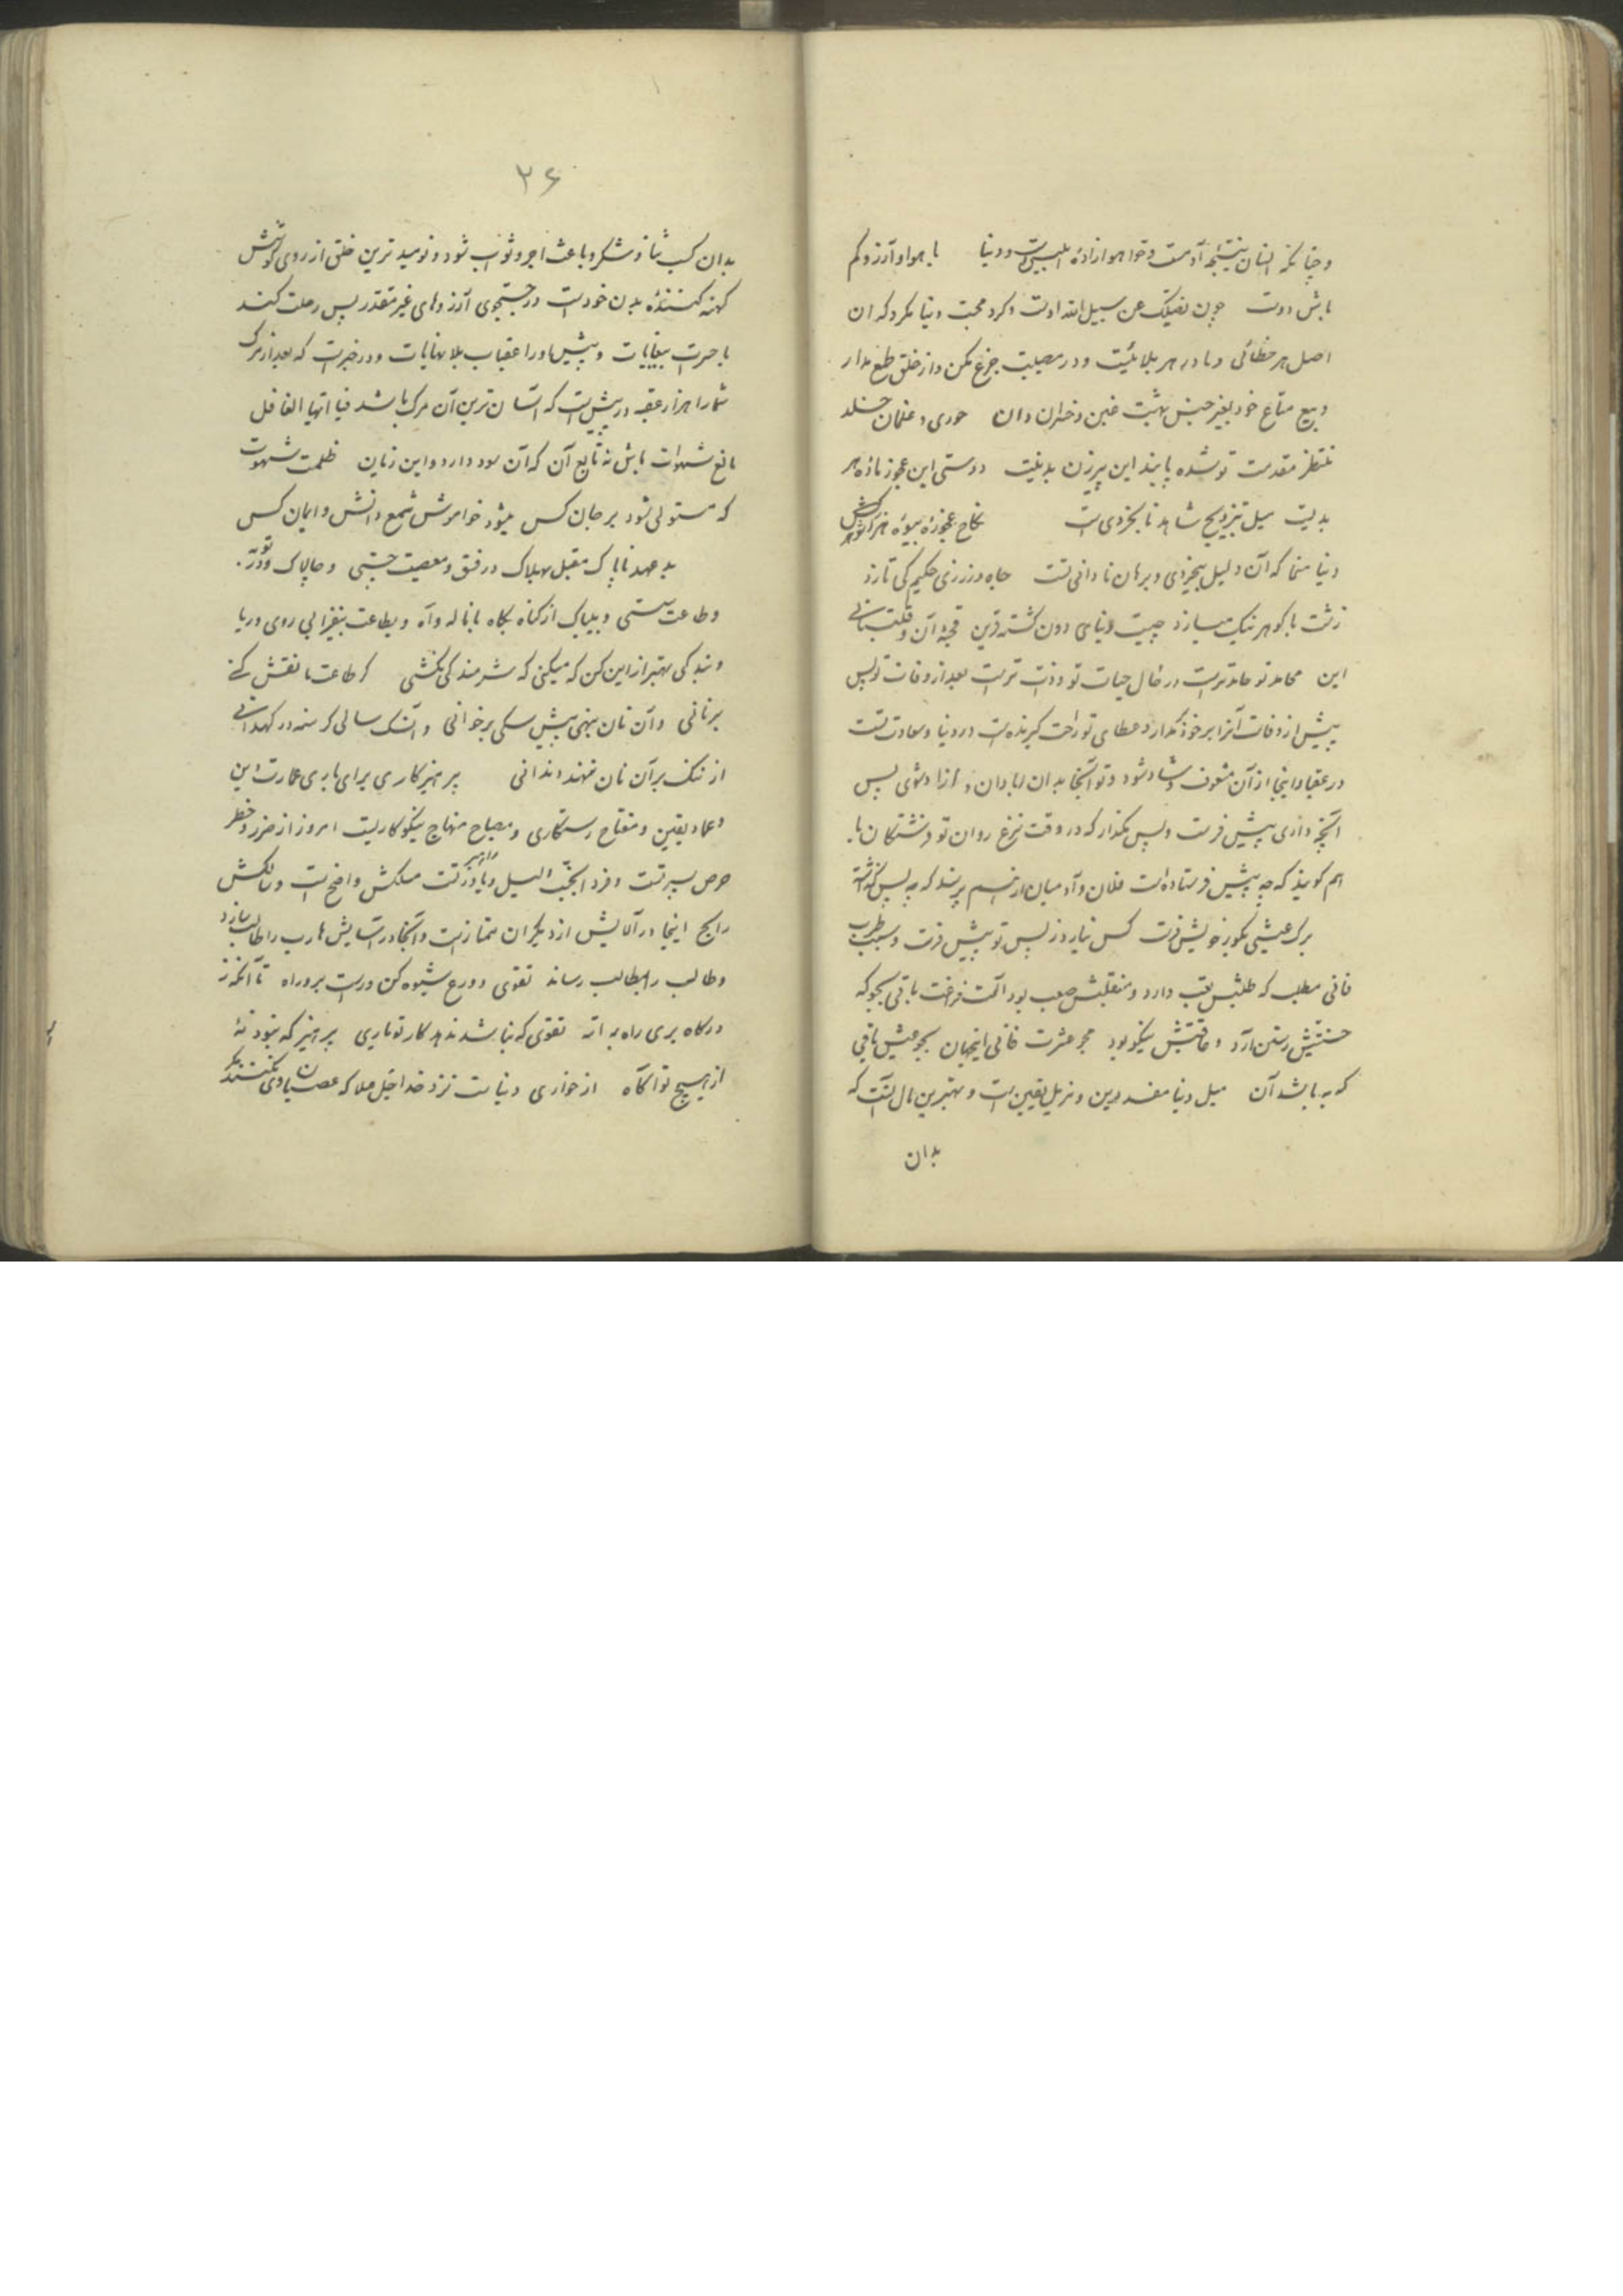 وچنانکه انسان نتیجه آدمست وحوا هوا زاده ابلیس است ودنیا با هوا و آرزو کم
باش دوست چون یضلک عن سبیل الله اوست وگرد محبت دنیا مگرد که آن
اصل هر خطائی ومادر هر بلائیست ودر مصیبت جزع مکن واز خلق طمع مدار
وبیع متاع خود بغیر جنس بهشت غبن وخسران دان حوری وغلمان خلد
منتظر مقدمت تو شده پابند این پیرزن دوستی این عجوز ماده هر
بدیست میل بتزویج شاهد نابخردی است نکاح عجوزه بیوه
دنیا منما که آن دلیل بیخردی وبرهان نادانی تست جاه وزر زی حکیم کی تازد
زشت با گوهر نیک میسازد چیست دنیای دون گشته قرین قحبه آن
این محامد تو حامدترست در حال حیات تو وذست ترست بعد از وفات تو پس
پیش از وفات آنرا بر خود مگذار وعطای تو راحت گیرنده است در دنیا وسعادت تست
در عقبا واینجا از آن مشعوف وشاد شود وتو آنجا بدان آبادان و آزاد شوی پس
آنچه داری پیش فرست وپس مگذار که در وقت نزع روان تو فرشتگان با
هم گویند که چه پیش فرستاده است فلان وآدمیان از هم پرسند که چه پس گذاشته
برگ عیشی بگور خویش فرست کس نیارد ز پس تو پیش فرست وسبب طرب
فانی مطلب که طلبش تعب دارد ومنقلبش صعب بود آلت فرحت باقی بجو که
جستنش رستن آرد وعاقبتش نیکو بود مجو عشرت فانی اینجهان بجو عیش باقی
که به باشد آن میل دنیا مفسد دین ومزیل یقین است وبهترین مال آنست که
بدان
۳۶
بدان کسب ثنا وشکر وباعث اجر وثواب شود ونومیدترین خلق از روی کوشش
کهنه کننده بدن خود است در جستجوی آرزوهای غیر مقدر پس رحلت کند
با حسرت بیغایات وپیش او را عقبات بلانهایات ودر خبرست که بعد از مرگ
شما را هزار عقبه در پیش است که آسان ترین آن مرگ باشد فیا ایها الغافل
مانع شهوات باش نه تابع آن که آن سود دارد واین زیان ظلمت شهوت
که مستولی شود بر جان کس میشود خاموش شمع دانش وایمان کس
بد عهد ناپاک مقبل بهلاک در فسق ومعصیت چستی وچالاک
وطاعت سستی وبیباک از گناه بگاه با ناله وآه وبطاعت بیفزا بی روی وریا
وبندگی بهتر از این کن که میکنی که شرمندگی نکشی گر طاعت ما نقش کنی
بر نانی وآن نان بنهی پیش سگی بر خوانی وآن سگ سالی گرسنه در کهدانی
از ننگ بر آن نان ننهد دندانی پرهیزکاری برای باری عمارت دین
وعماد یقین ومفتاح رستگاری ومصباح منهاج نیکوکاریست امروز از ضرر وخطر
حرص سپر تست وفردا بجنب السبیل راهبر تست مسلکش واضح است وسالکش
رابح اینجا در آلایش از دیگران ممتاز است وآنجا در آسایش هارب را طالب سازد
وطالب را بمطالب رساند تقوی وورع شیوه کن درست برو راه تا آنکه ز
درگاه بری راه به آله تقوی که نباشد ندهد کار تو یاری پرهیز که نبود نه
از هیچ تو آگاه از خواری دنیاست نزد خدا جل علا که عصیان او نمیکنند مگر